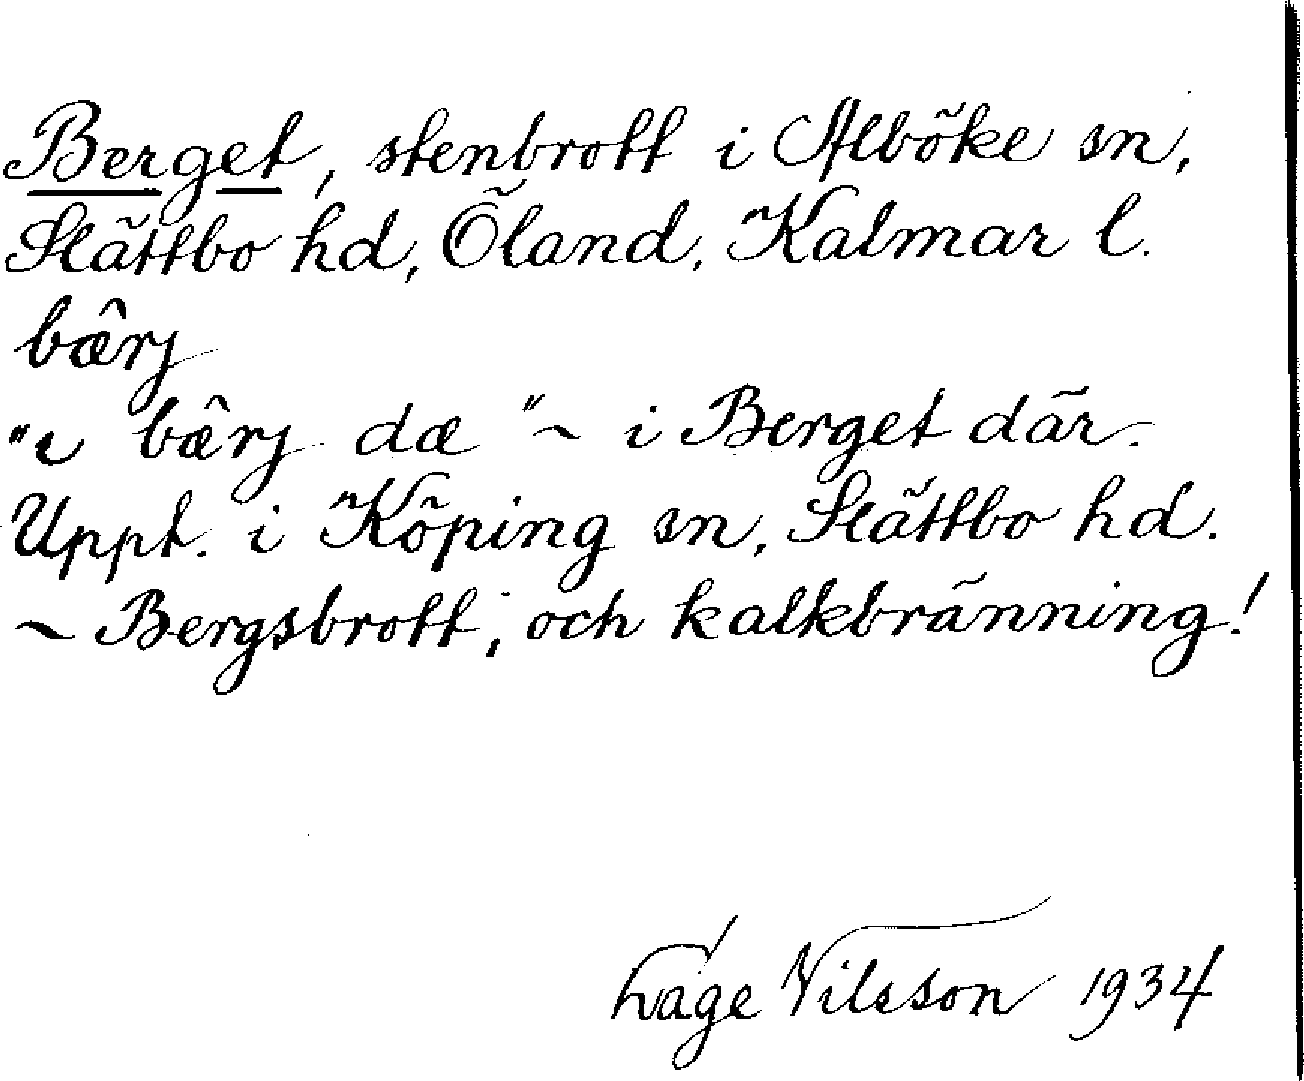 Berget, stenbrott i Alböke sn,
Slättbo hd, Öland, Kalmar l.
bæ̂rj
"ɩ bæ̂rj dæ" ~ i Berget där.
Uppt. i Köping sn, Slättbo hd.
~ Bergsbrott, och kalkbränning!
Lage Nilsson 1934